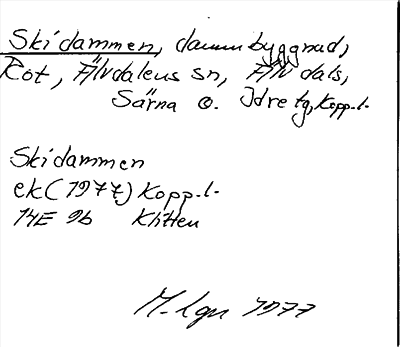 Skidammen, dammbyggnad,
Rot, Älvdalens sn, Älvdals,
Särna o. Idre tg, Kopp.l.
Skidammen
ek (1977) Kopp.l.
14E 9b Klitten
M. Lgn 1977